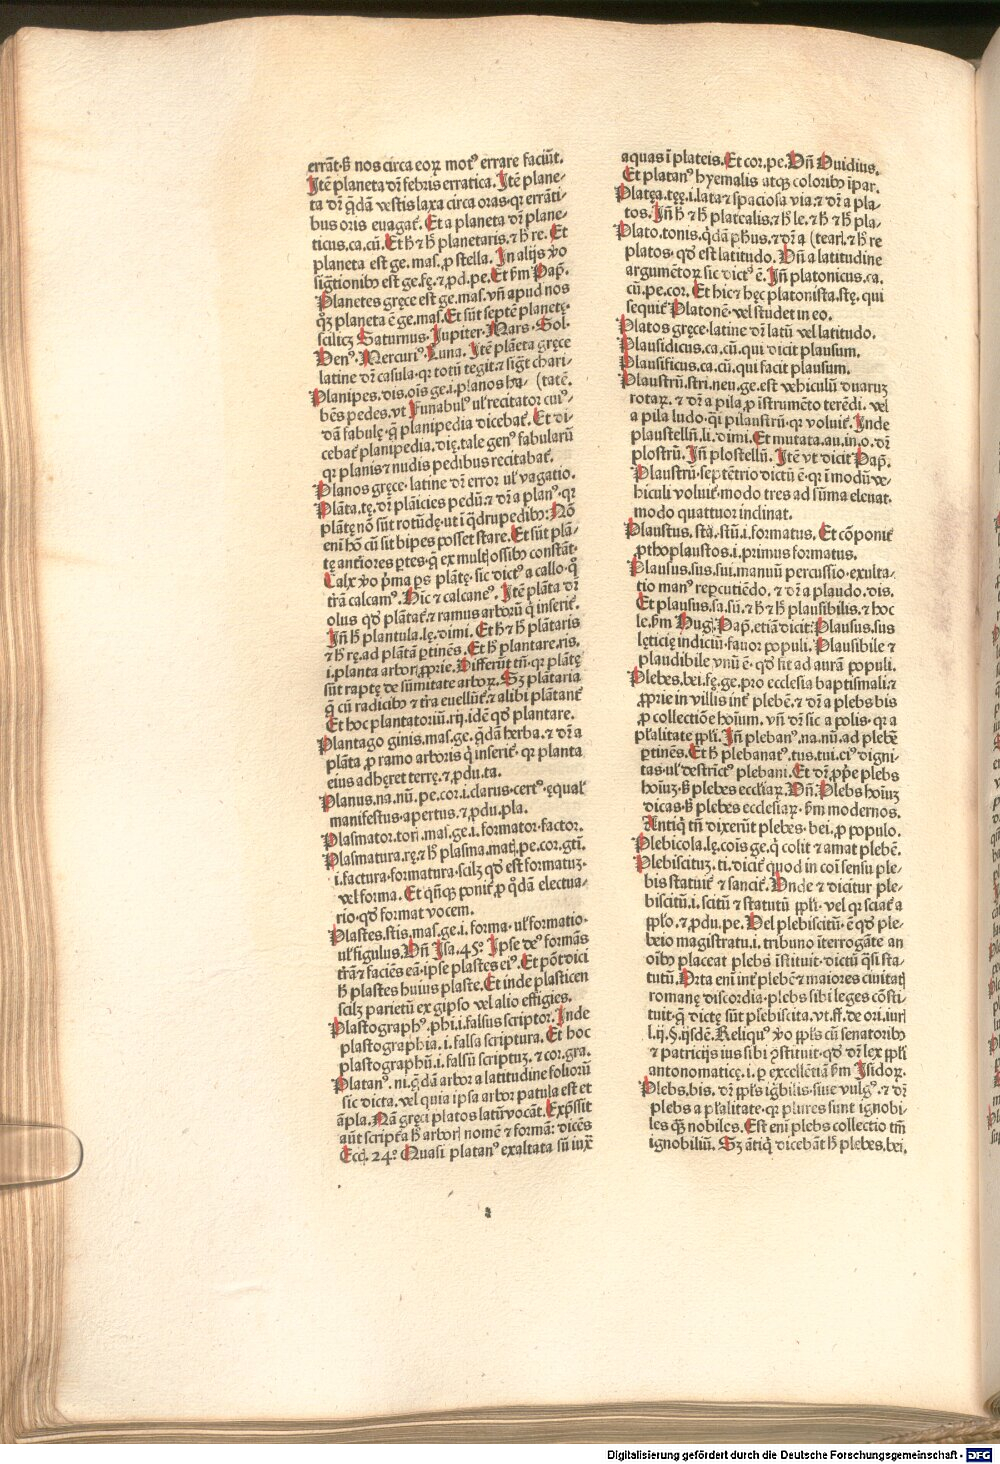 errāt·ß nos circa eoꝝ motꝰ errare faciūt.
Itē planeta dr̄ febris erratica. Itē plane-
ta dr̄ q̄dā vestis laxa circa oras·qꝛ errāti-
bus oris euagat̄. Et a planeta dr̄ plane-
ticus.ca.cū. Et h̄ ⁊ h̄ planetaris.⁊ h̄ re. Et
planeta est ge.mas. ꝓ stella. In alijs ꝟo
sigt̄ionibꝰ est ge.fę.⁊ ꝓd.pe. Et ẜm Pap̄.
Planetes gręce est ge.mas.vn̄ apud nos
qꝫ planeta ē ge.mas. Et sūt septē planetę·
scilicꝫ Saturnus·Iupiter·Mars·Sol·
Venꝰ·Mercuriꝰ·Luna. Itē plāeta gręce
latine dr̄ casula·qꝛ totū tegit·⁊ sigt̄ chari-
Planipes.dis.oīs ge.i.planos ha- (tatē.
bēs pedes.vt Funabulꝰ uł recitator cuiꝰ-
dā fabulę·q̄ planipedia dicebat̄. Et di-
cebat̄ planipedia.dię.tale genꝰ fabularū
qꝛ planis ⁊ nudis pedibus recitabat̄.
Planos gręce·latine dr̄ error uł vagatio.
Plāta.tę.dr̄ plāicies pedū.⁊ dr̄ a planꝰ·qꝛ
plātę nō sūt rotūdę·ut i q̄drupedibꝰ: Nō
eni hō cū sit bipes posset stare. Et sūt plā-
tę antiores ꝑtes·q̄ ex multꝭ ossibꝰ constāt·
Calx ꝟo pͥma ꝑs plātę·sic dictꝰ a callo·qͦ
trā calcamꝰ. Hic ⁊ calcaneꝰ. Itē plāta dr̄
olus qd̄ plātat̄·⁊ ramus arborū q̄ inserit̄.
In̄ h̄ plantula.lę.dimi. Et h̄ ⁊ h̄ plātaris
⁊ h̄ rę.ad plātā ꝑtinēs. Et h̄ plantare.ris.
i.planta arborꝭ ꝓprie. Differūt tn̄·qꝛ plātę
sūt raptę de sūmitate arboꝝ. Sꝫ plātaria
q̄ cū radicibꝰ ⁊ tr̄a euellūt̄·⁊ alibi plātant̄
Et hoc plantatoriū.rij.idē qd̄ plantare.
Plantago ginis.mas.ge.q̄dā herba.⁊ dr̄ a
plāta ꝓ ramo arboris q̄ inserit̄·qꝛ planta
eius adhęret terrę.⁊ ꝓdu.ta.
Planus.na.nū.pe.cor.i.clarus·certꝰ·ęqual̄
manifestus·apertus.⁊ ꝓdu.pla.
Plasmator.torꝭ.mas.ge.i.formator·factor.
Plasmatura.rę.⁊ h̄ plasma.matꝭ.pe.cor.gti.
i.factura·formatura·scilꝫ qd̄ est formatuꝫ·
vel forma. Et qn̄qꝫ ponit̄ ꝓ qͦdā electua-
rio·qd̄ format vocem.
Plastes.stis.mas.ge.i.forma·uł formatio·
uł figulus. Vn̄ Isa.45°. Ipse deꝰ formās
tr̄ā ⁊ faciēs eā·ipse plastes eiꝰ. Et pōt dici
h̄ plastes huius plaste. Et inde plasticen
scilꝫ parietū ex gipso vel alio effigies.
Plastographꝰ.phi.i.falsus scriptor. Inde
plastographia.i.falsa scriptura. Et hoc
plastographū.i.falsū scriptuꝫ.⁊ cor.gra.
Platanꝰ.ni.q̄dā arbor a latitudine foliorū
sic dicta.vel quia ipsa arbor patula est et
āpla. Nā gręci platos latū vocāt. Exp̄ssit
aūt script̄a h̄ arborꝭ nomē ⁊ formā: dicēs
Ecclꝭ.24°. Quasi platanꝰ exaltata sū iuxͣ
aquas i plateis. Et cor.pe. Vn̄ Ouidius.
Et platanꝰ hyemalis atqꝫ coloribꝰ ipar.
Platęa.tęę.i.lata ⁊ spaciosa via:⁊ dr̄ a pla-
tos. In̄ h̄ ⁊ h̄ platealis.⁊ h̄ le.⁊ h̄ ⁊ h̄ pla-
Plato.tonis.q̄dā ph̄us.⁊ dr̄ a (tearꝭ.⁊ h̄ re
platos·qd̄ est latitudo. Vn̄ a latitudine
argumētoꝝ sic dictꝰ ē. In̄ platonicus.ca.
cū.pe.cor. Et hic ⁊ hęc platonista.stę.qui
sequit̄ Platonē·vel studet in eo.
Platos gręce·latine dr̄ latū vel latitudo.
Plausidicus.ca.cū.qui dicit plausum.
Plausificus.ca.cū.qui facit plausum.
Plaustrū.stri.neu.ge.est vehiculū duaruꝫ
rotaꝝ.⁊ dr̄ a pila ꝓ istrumēto terēdi.vel
a pila ludo·q̄i pilaustrū·qꝛ voluit̄. Inde
plaustellū.li.dimi. Et mutata.au.in.o.dr̄
plostrū. In̄ plostellū. Itē vt dicit Pap̄.
Plaustrū·septētrio dictū ē·qꝛ i modū ve-
hiculi voluit̄·modo tres ad sūma eleuat·
modo quattuor inclinat.
Plaustus.sta.stū.i.formatus. Et cōponit̄
ꝓthoplaustos.i.primus formatus.
Plausus.sus.sui.manuū percussio·exulta-
tio manꝰ reꝑcutiēdo.⁊ dr̄ a plaudo.dis.
Et plausus.sa.sū.⁊ h̄ ⁊ h̄ plausibilis.⁊ hoc
le.ẜm Hug. Pap̄.etiā dicit: Plausus.sus
lęticię indiciū·fauor populi. Plausibile ⁊
plaudibile vnū ē·qd̄ fit ad aurā populi.
Plebes.bei.fę.ge.pro ecclesia baptismali.⁊
ꝓprie in villis int̄ plebē.⁊ dr̄ a plebs bis
ꝓ collectiōe hoīum.vn̄ dr̄ sic a polis·qꝛ a
pl̄alitate pp̄li. In̄ plebanꝰ.na.nū.ad plebē
ꝑtinēs. Et h̄ plebanatꝰ.tus.tui.eiꝰ digni-
tas·uł destrictꝰ plebani. Et dr̄ ꝓp̄e plebs
hoīuꝫ·ß plebes eccl̄iaꝝ. Vn̄. Plebs hoīuꝫ
dicas·ß plebes ecclesiaꝝ·ẜm modernos.
Antiqͥ tn̄ dixerūt plebes·bei.ꝓ populo.
Plebicola.lę.cois ge.qͥ colit ⁊ amat plebē.
Plebiscituꝫ.ti.dicit̄ quod in coī sensu ple-
bis statuit̄ ⁊ sancit̄. Vnde ⁊ dicitur ple-
biscitū.i.scitū ⁊ statutū pp̄li·vel qꝛ sciat̄ a
pp̄lo.⁊ ꝓdu.pe. Vel plebiscitū·ē qd̄ ple-
beio magistratu.i.tribuno iterrogāte an
oībꝰ placeat plebs īstituit·dictū q̄si sta-
tutū. Orta eni int̄ plebē ⁊ maiores ciuitatꝭ
romanę discordia·plebs sibi leges cōsti-
tuit·q̄ dictę sūt plebiscita.vt.ff.de ori.iurꝭ
l.ij.§.ijsdē. Reliquꝰ ꝟo pp̄ls cū senatoribꝰ
⁊ patricijs ius sibi ꝯstituit·qd̄ dr̄ lex pp̄li
antonomaticę.i.ꝑ excellētiā ẜm Isidoꝝ.
Plebs.bis.dr̄ pp̄ls igbilis·siue vulgꝰ.⁊ dr̄
plebs a pl̄alitate·qꝛ plures sunt ignobi-
les qꝫ̄ nobiles. Est eni plebs collectio tm̄
ignobiliū. Sꝫ ātiqͥ dicebāt h̄ plebes.bei.
Digitalisierung gefördert durch die Deutsche Forschungsgemeinschaft - DFG